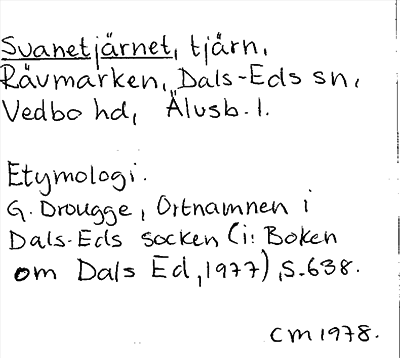 Svanetjärnet, tjärn,
Rävmarken, Dals-Eds sn,
Vedbo hd, Älvsb. l.
Etymologi.
G. Drougge, Ortnamnen i
Dals-Eds socken (i: Boken
om Dals Ed, 1977), s. 638.
CM 1978.